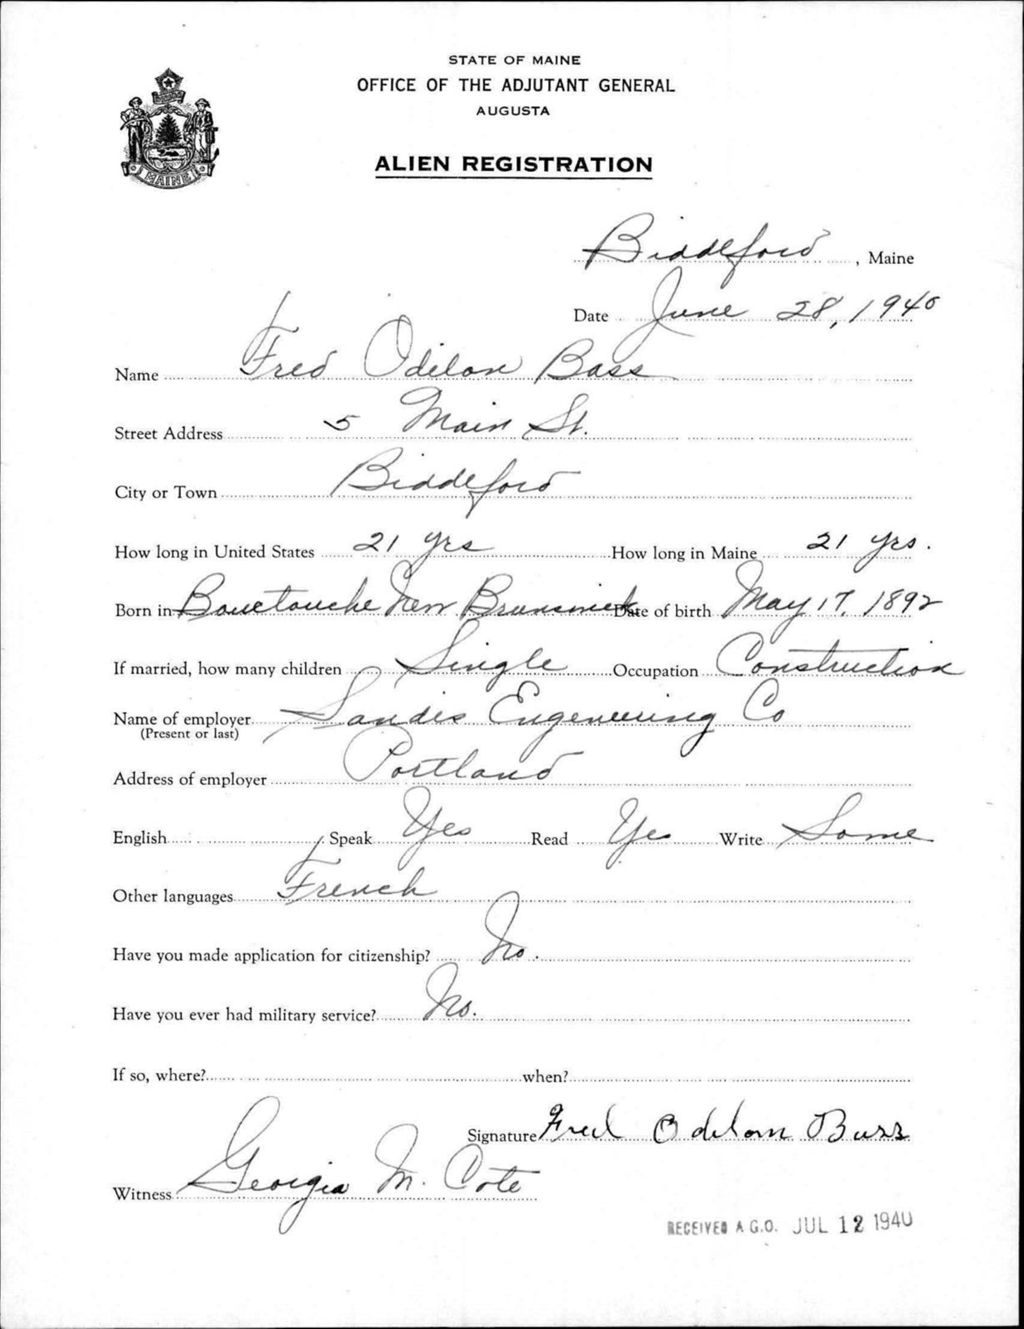 STATE OF MAINE
OFFICE OF THE ADJUTANT GENERAL
AUGUSTA
ALIEN REGISTRATION
MAINE
Biddeford, Maine
Date June 28, 1940
Name Fred Odilon Bass
Street Address 5 Main St.
City or Town Biddeford
How long in United States 21 yrs How long in Maine 21 yrs.
Born in Bouctouche New Brunswick Date of birth May 17, 1892
If married, how many children Single Occupation Construction
Name of employer Sandis Engeneering Co
(Present or last)
Address of employer Portland
English Speak Yes Read Yes Write Some
Other languages French
Have you made application for citizenship? No.
Have you ever had military service? No.
If so, where? when?
Signature Fred Odelom Bass
Witness Georgia M. Cote
RECEIVED A.G.O. JUL 12 1940